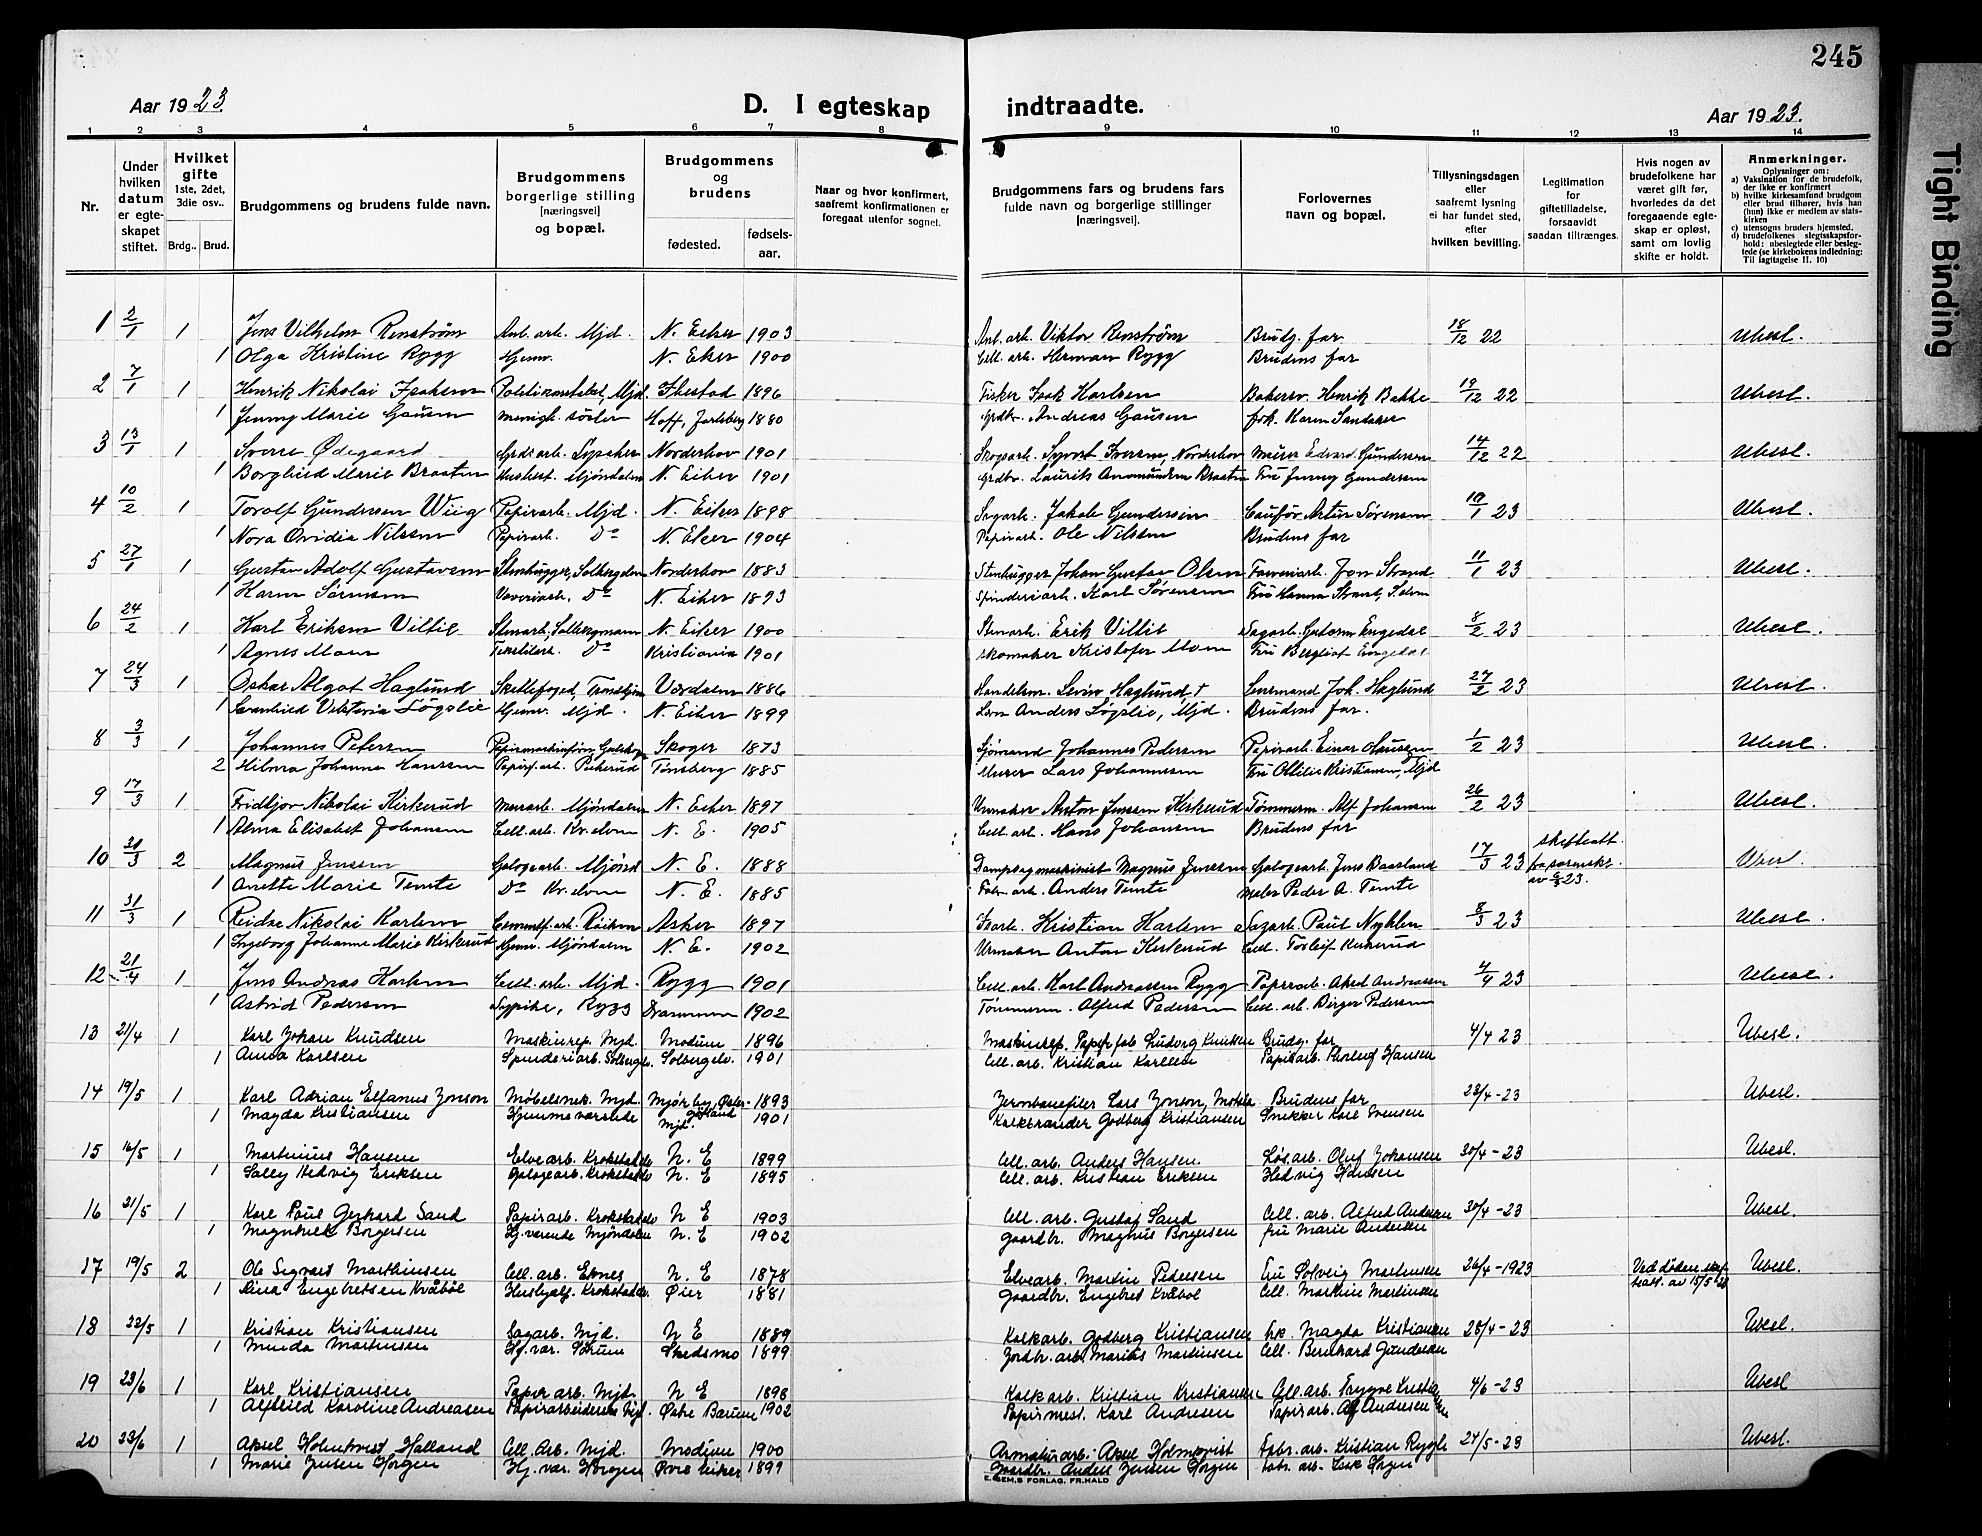 245
Aar 1923.
D. I egteskap indtraadte.
Aar 1923.
1 2 3 4 5 6 7 8 9 10 11 12 13 14
Nr.
Under hvilken datum er egteskapet stiftet.
Hvilket gifte 1ste, 2det, 3die osv..
Brdg.. Brud.
Brudgommens og brudens fulde navn.
Brudgommens borgerlige stilling [næringsvei] og bopæl.
Brudgommens og brudens
fødested. fødselsaar.
Naar og hvor konfirmert, saafremt konfirmationen er foregaat utenfor sognet.
Brudgommens fars og brudens fars fulde navn og borgerlige stillinger [næringsvei].
Forlovernes navn og bopæl.
Tillysningsdagen eller saafremt lysning ei har fundet sted, efter hvilken bevilling.
Legitimation for giftetilladelse, forsaavidt saadan tiltrænges.
Hvis nogen av brudefolkene har været gift før, hvorledes da det foregaaende egteskap er opløst, samt om lovlig skifte er holdt.
Anmerkninger.
Oplysninger om:
a) Vaksination for de brudefolk, der ikke er konfirmert
b) hvilke kirkesamfund brudgom eller brud tilhører, hvis han (hun) ikke er medlem av statskirken
c) utensogns bruders hjemsted.
d) brudefolkenes slegtsskapsforhold: ubeslegtede eller beslegtede (se kirkebokens indledning: Til iagttagelse II. 10)
1 2/1 1 Jens Vilhelm Renstrøm Anl. arb. Mjd. N. Eiker 1903 Anl. arb. Viktor Renstrøm Brudg. far 18/12 22 Ubesl.
1 Olga Kristine Rygg Hjemv. N. Eiker 1900 Cell. arb. Herman Rygg Brudens far
2 7/1 1 Henrik Nikolai Isaksen Politikonstabel, Mjd. Ibestad 1896 Fisker Isak Karlsen Bakersv. Henrik Bakke 19/12 22 Ubesl.
1 Jenny Marie Gausen menigh. søster Hoff, Jarlsberg 1880 Grdbr. Andreas Gausen frk. Karen Sandaker
3 13/1 1 Sverre Ødegaard Grdsarb. Lysaker Norderhov 1901 Skogsarb. Syvert Iversen, Norderhov Murer Edvard Gundersen 14/12 22 Ubesl.
1 Borghild Marie Braaten Mjøndalen N. Eiker 1901 Grdbr. Laurits Braaten Fru Jenny Gundersen
4 10/2 1 Torolf Gundersen Wiig Papirarb. Mjd. N. Eiker 1898 Sagarb. Jakob Gundersen Caufør Artur Sørensen 10/1 23 Ubesl.
1 Nora Ovidia Nilssen Papirarb. Do N. Eiker 1904 Papirarb. Ole Nilssen Brudens far
5 27/1 1 Gustav Adolf Gustavsen Stenhugger, Solbergelven Norderhov 1883 Stenhugger Johan Gustav Olsen Farveriarb. Jon Strand 11/1 23 Ubesl.
1 Karen Sørensen Væveriarb. Do N. Eiker 1893 Spinderiarb. Karl Sørensen Fru Hanna Strand, S.elven
6 24/2 1 Karl Eriksen Viltil Stenarb. N. Eiker 1900 Stenarb. Erik Viltil Sagarb. Guttorm Engedal 8/2 23 Ubesl.
1 Agnes Moen Do Kristiania 1901 Skomaker Kristofer Moen Fru Bergliot Engedal
7 24/3 1 Oskar Algot Haglund Skattefoged, Verdalen 1886 Handelsm. Haglund † Lensmand Joh. Haglund 27/2 23 Ubesl.
1 Svanhild Viktoria Løgslie Hjemv. Mjd. N. Eiker 1899 Anders Løgslie, Mjd. Brudens far.
8 3/3 1 Johannes Petersen Skoger 1873 Sjømand Johannes Pedersen Papirarb. Einar Clausen 1/2 23 Ubesl.
2 Hilma Johanne Hanssen Papirf. arb. Tønsberg 1885 Murer Lars Johannesen Fru Ottilie Kristiansen, Mjd
9 17/3 1 Fridtjov Nikolai Kirkerud Murarb. Mjøndalen N. Eiker 1897 Urmaker Anton Jenssen Kirkerud Tømmerm. Alf Johansen 26/2 23 Ubesl.
1 Alma Elisabet Johansen Cell. arb. Kr.elven N. E. 1905 Cell. arb. Hans Johansen Brudens far
10 31/3 2 Magnus Jenssen Galogearb. Mjønd N. E. 1888 Dampsagmaskinist Magnus Jenssen Galogearb. Jens Baasland 17/3 23 skifteatt. fra sorenskr. av 6/3 23. Ubesl.
1 Anette Marie Temte Do Kr.elven N. E. 1885 Fabr. arb. Anders Temte Maler Peder A. Temte
11 31/3 1 Reidar Nikolai Karlsen Cementf. arb. Røiken Asker 1897 Kristian Karlsen Sagarb. Paul Nyhlen 8/3 23 Ubesl.
1 Ingeborg Johanne Marie Kirkerud Hjemv. Mjøndalen N. E. 1902 Urmaker Anton Kirkerud Cell. Torleif Kirkerud
12 21/4 1 Jens Andreas Karlsen Cell. arb. Mjd. Rygg 1901 Cell. arb. Karl Andreassen Rygg Papirarb. Aksel Andreassen 4/4 23 Ubesl.
1 Astrid Pedersen Sypike, Rygg Drammen 1902 Tømmerm. Alfred Pedersen Cell. arb. Birger Pedersen
13 21/4 1 Karl Johan Knudsen Maskinrep. Mjd. Modum 1896 Maskinrep. Papirfab Ludvig Knudsen Brudg. far 4/4 23 Ubesl.
1 Anna Karlsen Spinderiarb. Solbergelv. Solbergelv. 1901 Cell. arb. Kristian Karlsen Papirarb. Thoralf Hansen
14 19/5 1 Karl Adrian Elfanus Jonson Møbelsnek. Mjd. Mjørby, Østergötland 1893 Jernbanefiler Lars Jonson, Motala Brudens far 23/4-23 Ubesl.
1 Magda Kristiansen Hjemmeværende Mjd. 1901 Kalkbrander Godberg Kristiansen Snekker Karl Svensen
15 16/5 1 Martinius Hansen Elvearb. Krokstadelv N. E 1899 Cell. arb. Anders Hansen Løsarb. Oluf Johansen 30/4-23 Ubesl.
1 Sally Hedvig Eriksen Galogearb. Krokstadelv N. E 1895 Cell. arb. Kristian Eriksen Hedvig Hansen
16 21/5 1 Karl Paul Gerhard Sand Papirarb. Krokstadelv N E 1903 Cell. arb. Gustav Sand Cell. arb. Alfred Andersen 30/4-23 Ubesl.
1 Magnhild Borgersen Hj. værende Mjøndalen N. E 1902 Gaardbr. Magnus Borgersen fru Marie Andersen
17 19/5 2 Ole Sigvart Marthinsen Cell. arb. Eknes N. E 1878 Elvearb. Martin Pedersen Fru Solveig Martinsen 26/4-1923 Ved døden skifteatt. av 15/5 23 Ubesl.
1 Lina Engebretsen Kvåbøl Hushjelp. Krokstadelv. Øier 1881 Gaardbr. Engebret Kvåbøl Cell. Martine Martinsen
18 22/5 1 Kristian Kristiansen Sagarb. Mjd. N E 1889 Kalkarb. Godberg Kristiansen frk. Magda Kristiansen 28/4-23 Ubesl.
1 Minda Martinsen Hj. vær. Sørum Skedsmo 1899 Jordbr. arb. Marius Martinsen Cell. Bernhard Gundersen
19 23/6 1 Karl Kristiansen Papirarb. Mjd. N E 1898 Kalkarb. Kristian Kristiansen Cell. arb. Trygve Kristiansen 4/6-23 Ubesl
1 Alfhild Karoline Andreasen Papirarbeiderske Mjd. Østre Bærum 1902 Papirmest. Karl Andresen Papirarb. Alf Andresen
20 23/6 1 Aksel Holmkvist Halland Cell. Arb. Mjd. Modum 1900 Armaturarb. Aksel Holmqvist Fabr. arb. Kristian Rygh 24/5-23 Ubesl.
1 Marie Jensen Horgen Hj. vær. Horgen Øvre Eiker 1899 Gaardbr. Anders Jensen Horgen Fabr. arb. Isak Horgen
E. SEM.S FORLAG, FR.HALD
Tight Binding